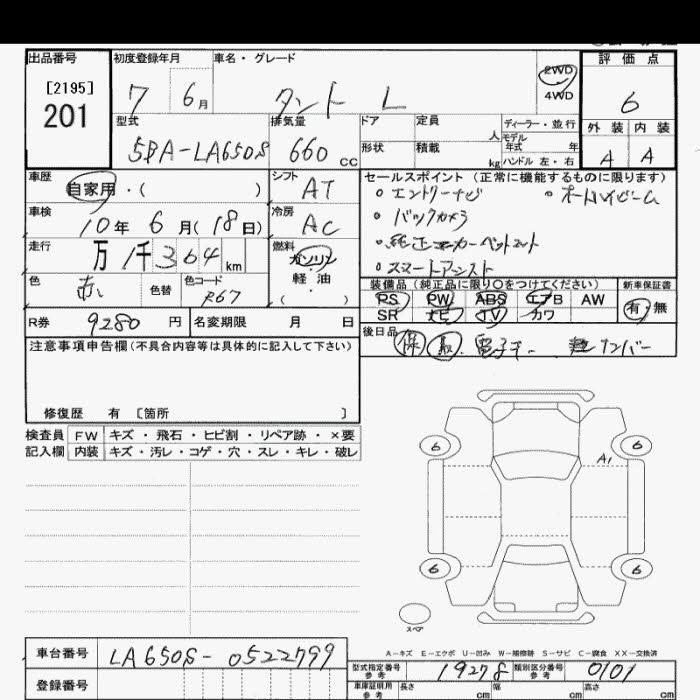 出品番号 初度登録年月 車名・グレード 2WD 評価点
[2195] 4WD
201 7 6月 タント L 6
型式 排気量 ドア 定員 ディーラー・並行 外装 内装
人 モデル
5BA-LA650S 660cc 形状 積載 年式 年 A A
kg ハンドル 左・右
車歴 シフト セールスポイント(正常に機能するものに限ります)
自家用・( ) AT ・エントリーナビ ・オートハイビーム
車検 冷房 ・バックカメラ
10年 6月(18日) AC ・純正カーペットマット
走行 燃料 ・スマートアシスト
万1千364km ガソリン
軽・油
色 色替 色コード 装備品(純正品に限り○をつけてください) 新車保証書
赤 R67 PS PW ABS エアB AW 有・無
SR ナビ TV カワ
R券 9280円 名変期限 月 日 後日品
保・取・電子キー
注意事項申告欄(不具合内容等は具体的に記入して下さい) ナンバー
修復歴 有 [箇所 ]
検査員 FW キズ・飛石・ヒビ割・リペア跡・×要
記入欄 内装 キズ・汚レ・コゲ・穴・スレ・キレ・破レ
6 6
A1
6 6
スペア
A-キズ E-エクボ U-凹み W-補修跡 S-サビ C-腐食 XX-交換済
車台番号 LA650S-0522799
型式指定番号 参考 19278 類別区分番号 参考 0101
登録番号 車庫証明用 参考 長さ cm 幅 cm 高さ cm